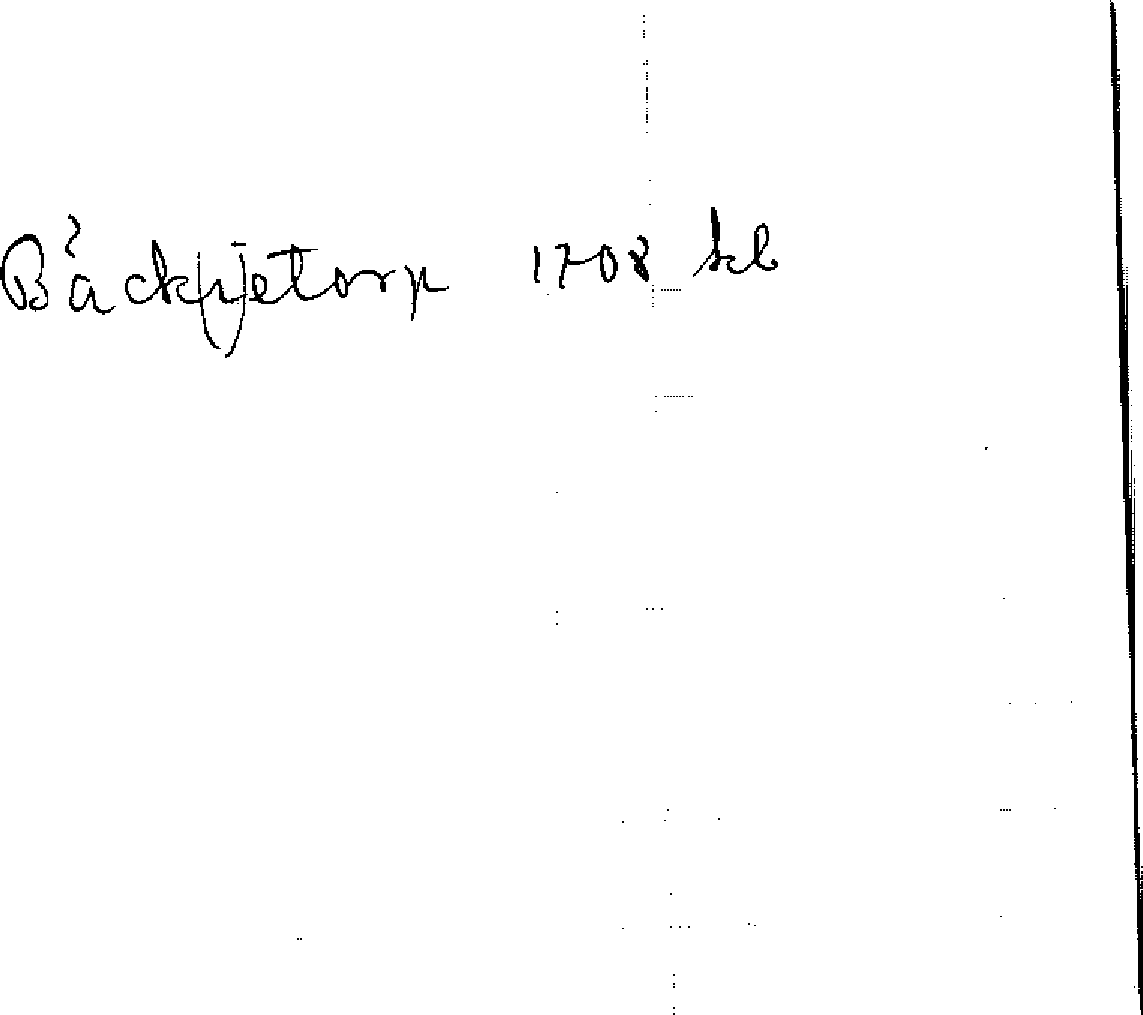 Båckpjetorp 1708 kb